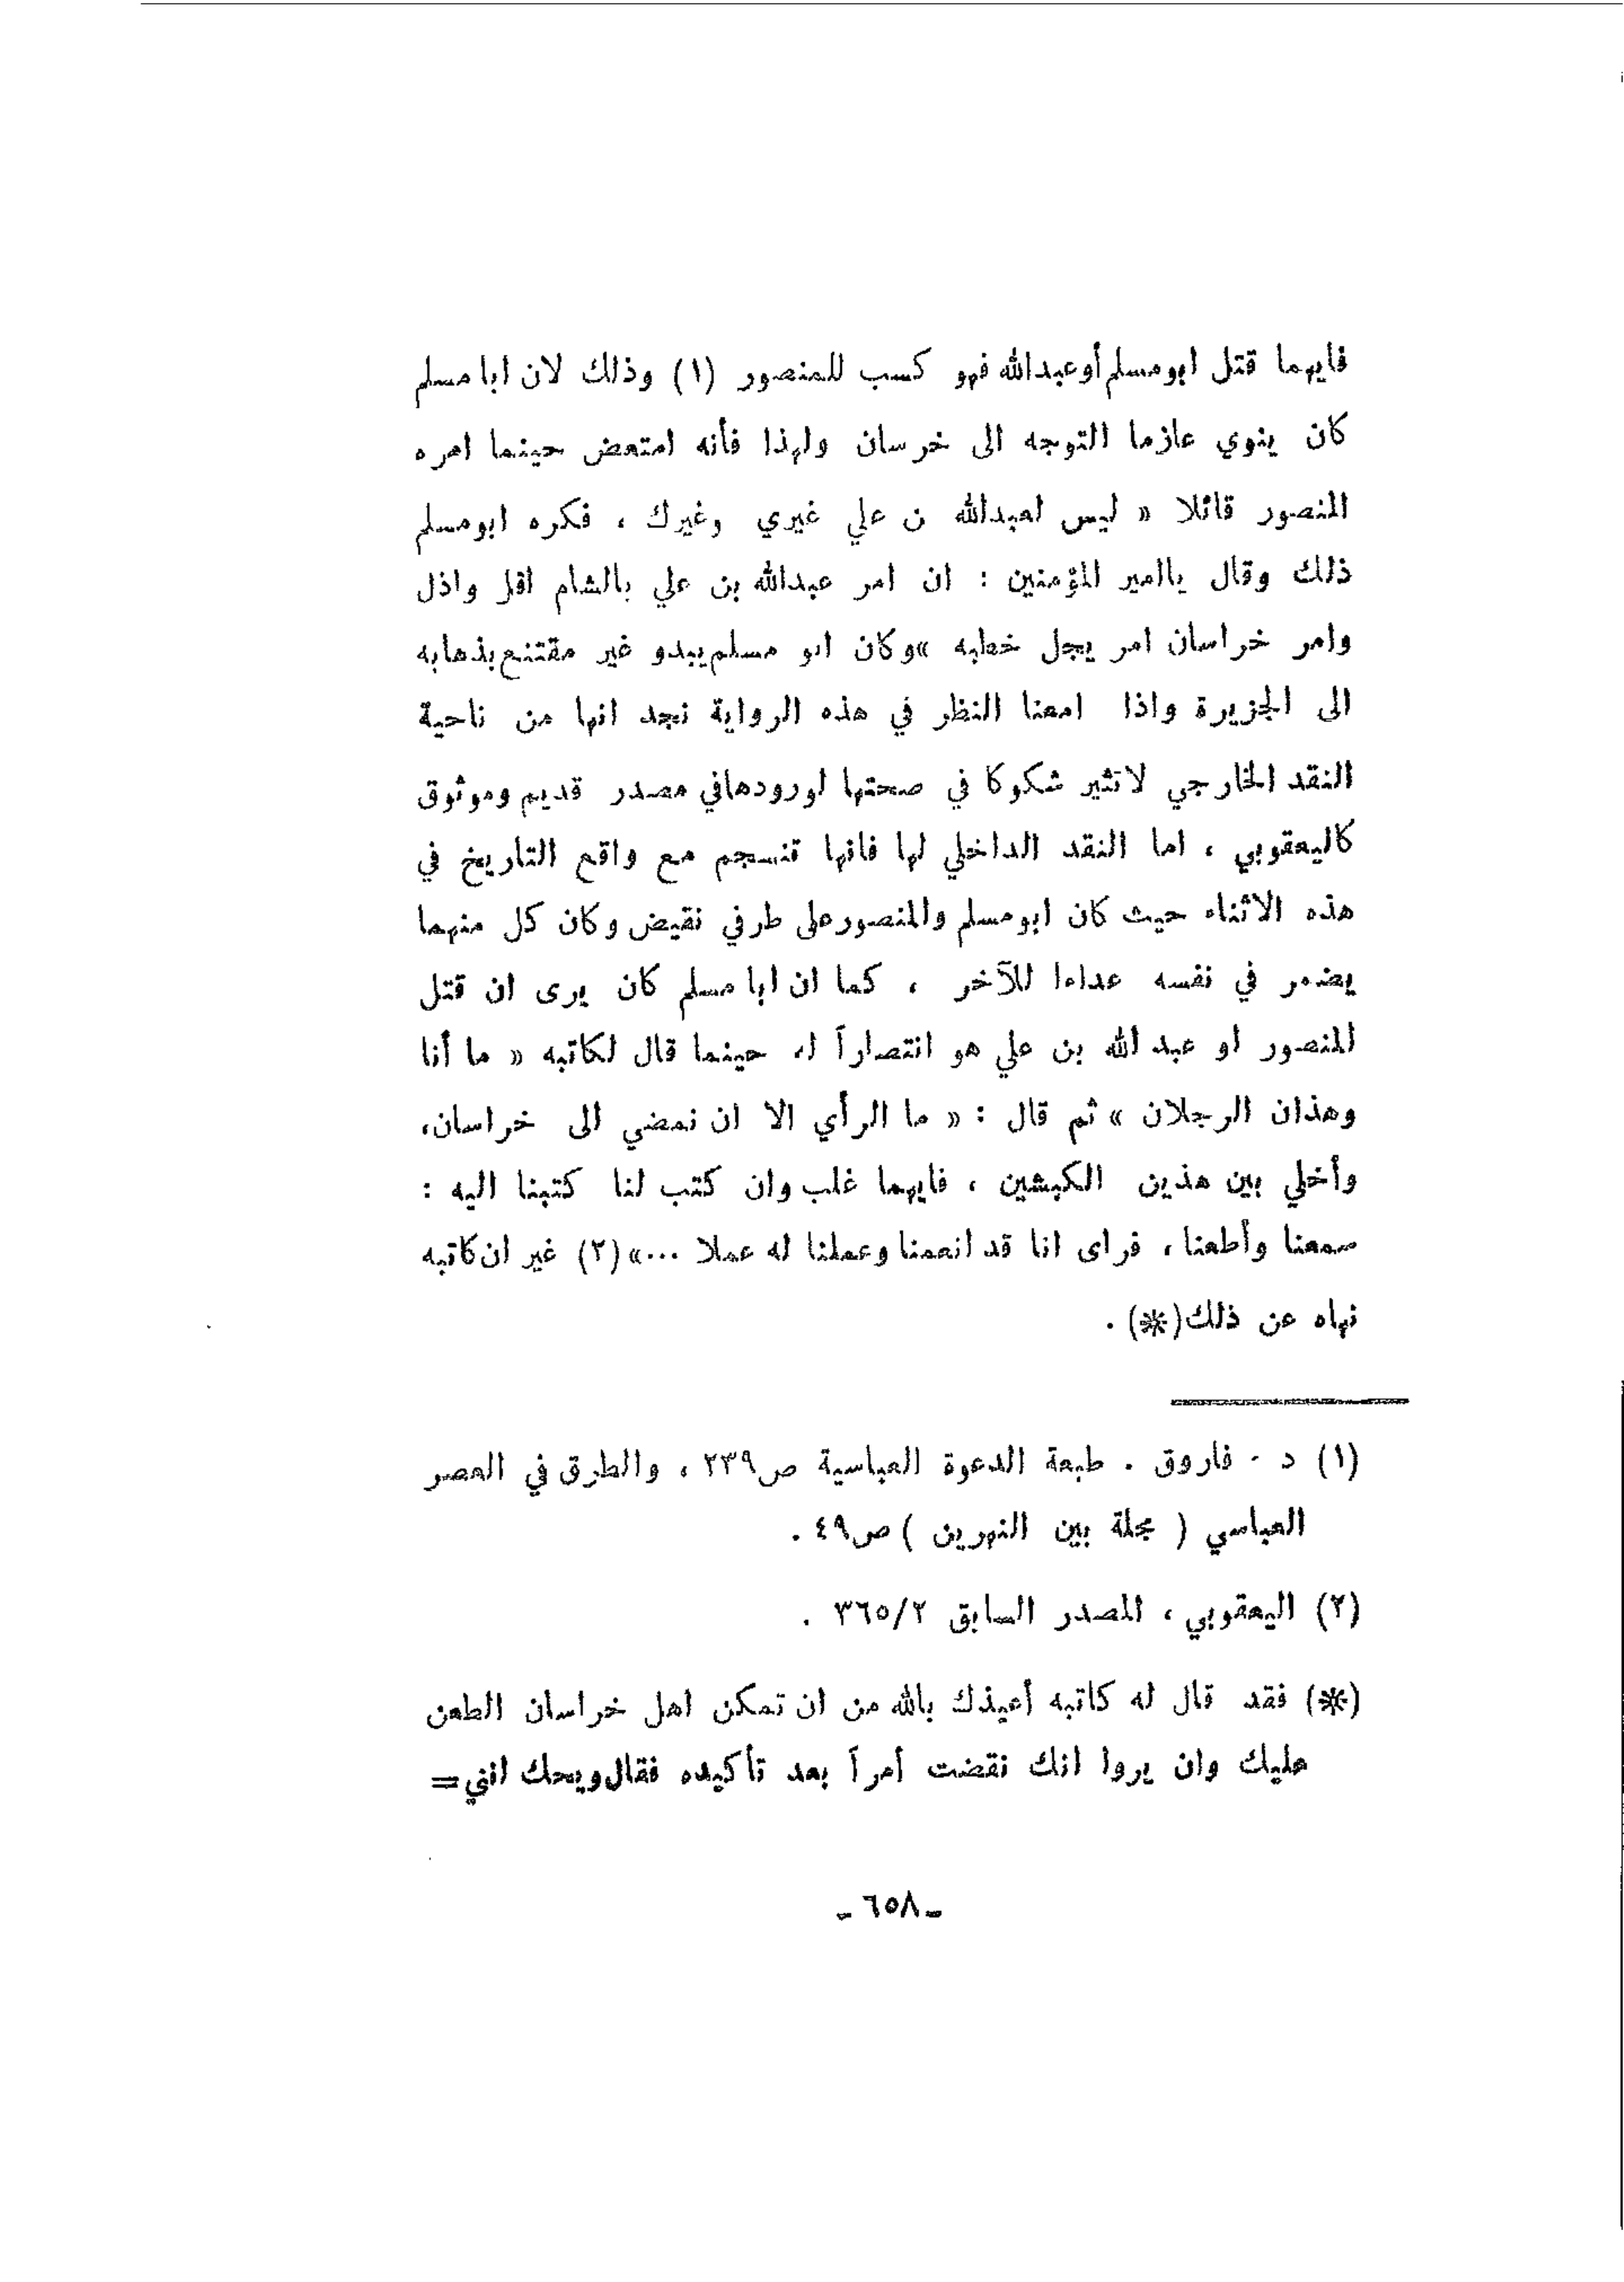 فايهما قتل ابومسلم أوعبدالله فهو كسب للمنصور (١) وذلك لان ابا مسلم
كان ينوي عازما التوجه الى خرسان ولهذا فأنه امتعض حينما امره
المنصور قائلا « ليس لعبدالله ن علي غيري وغيرك ، فكره ابومسلم
ذلك وقال ياامير المؤمنين : ان امر عبدالله بن علي بالشام اقل واذل
وامر خراسان امر يجل خطبه »وكان ابو مسلم يبدو غير مقتنع بذهابه
الى الجزيرة واذا امعنا النظر في هذه الرواية نجد انها من ناحية
النقد الخارجي لاتثير شكوكا في صحتها لورودهافي مصدر قديم وموثوق
كاليعقوبي ، اما النقد الداخلي لها فانها تنسجم مع واقع التاريخ في
هذه الاثناء حيث كان ابومسلم والمنصورعلى طرفي نقيض وكان كل منهما
يضمر في نفسه عداءا للآخر ، كما ان ابا مسلم كان يرى ان قتل
المنصور او عبد الله بن علي هو انتصاراً له حينما قال لكاتبه « ما أنا
وهذان الرجلان » ثم قال : « ما الرأي الا ان نمضي الى خراسان،
وأخلي بين هذين الكبشين ، فايهما غلب وان كتب لنا كتبنا اليه :
سمعنا وأطعنا ، فراى انا قد انعمنا وعملنا له عملا ...»(٢) غير ان كاتبه
نهاه عن ذلك(*) .
(١) د ٠ فاروق . طبعة الدعوة العباسية ص٢٣٩ ، والطرق في العصر
العباسي ( مجلة بين النهرين ) ص٤٩ .
(٢) اليعقوبي ، المصدر السابق ٣٦٥/٢ .
(*) فقد قال له كاتبه أعيذك بالله من ان تمكن اهل خراسان الطعن
عليك وان يروا انك نقضت أمراً بعد تأكيده فقال ويحك انني=
ـ ٦٥٨ ـ